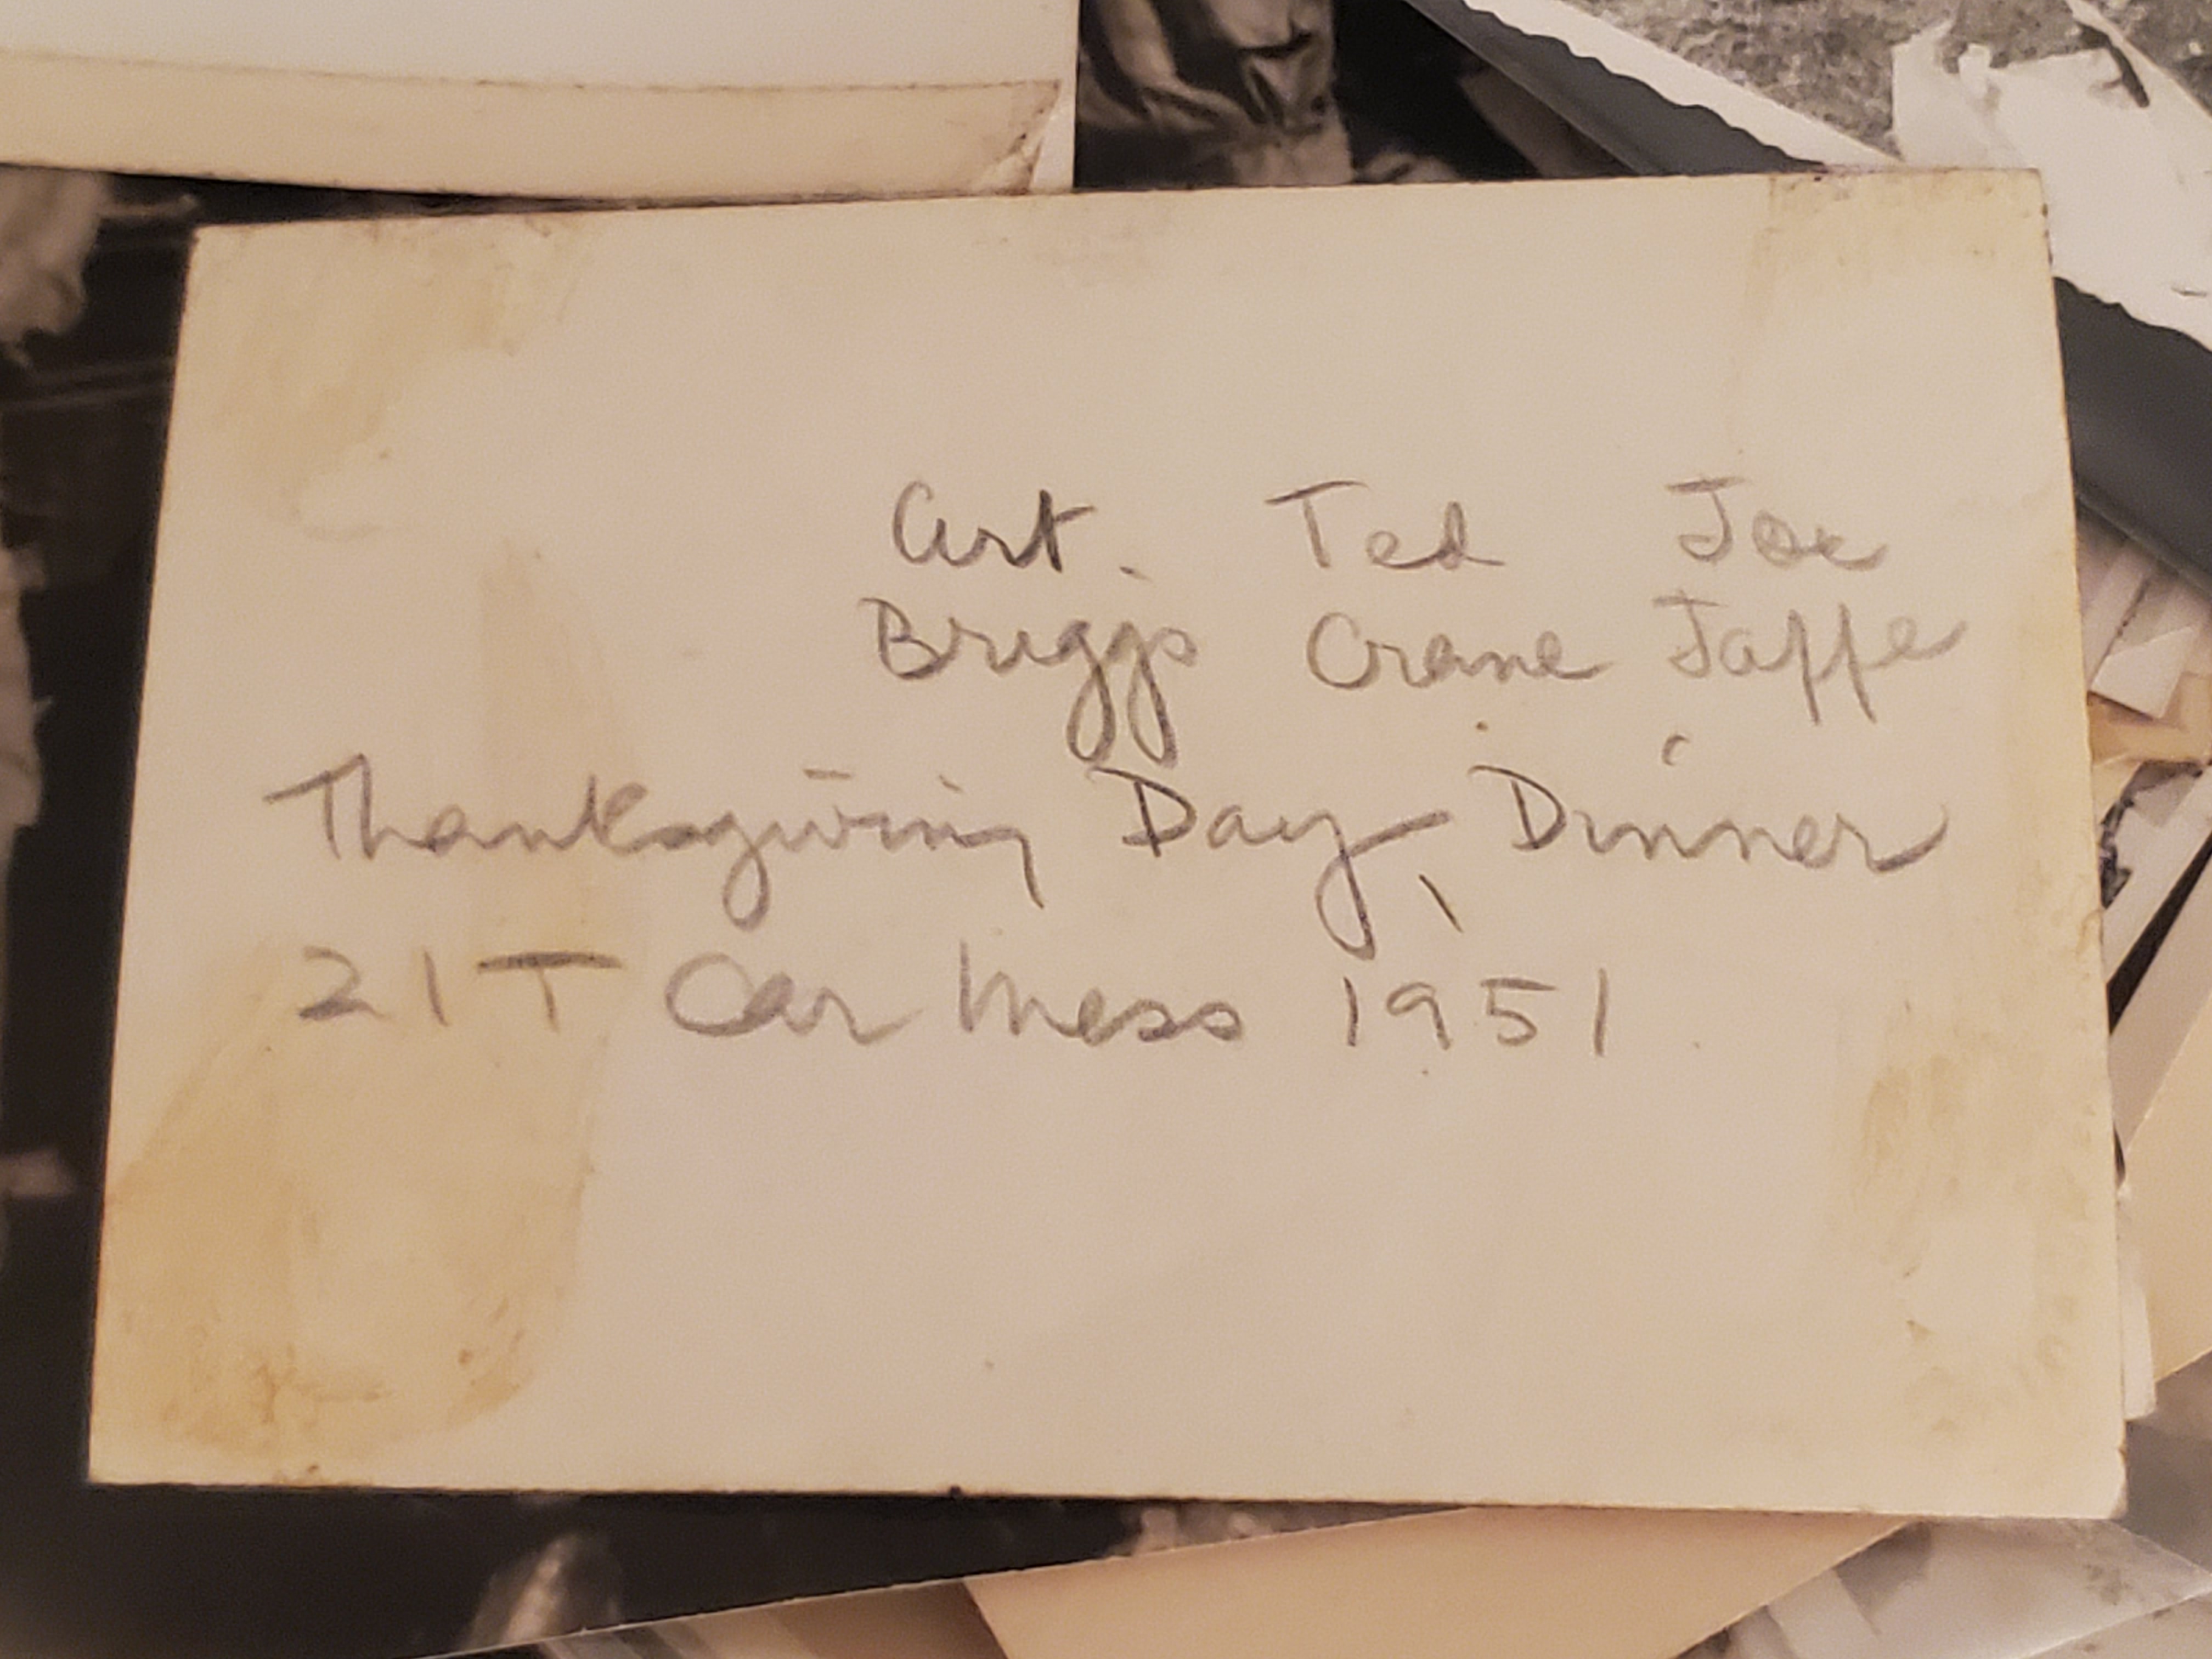 Art. Ted Joe
Briggs Crane Jaffe
Thanksgiving Day, Dinner
21T Car Mess 1951